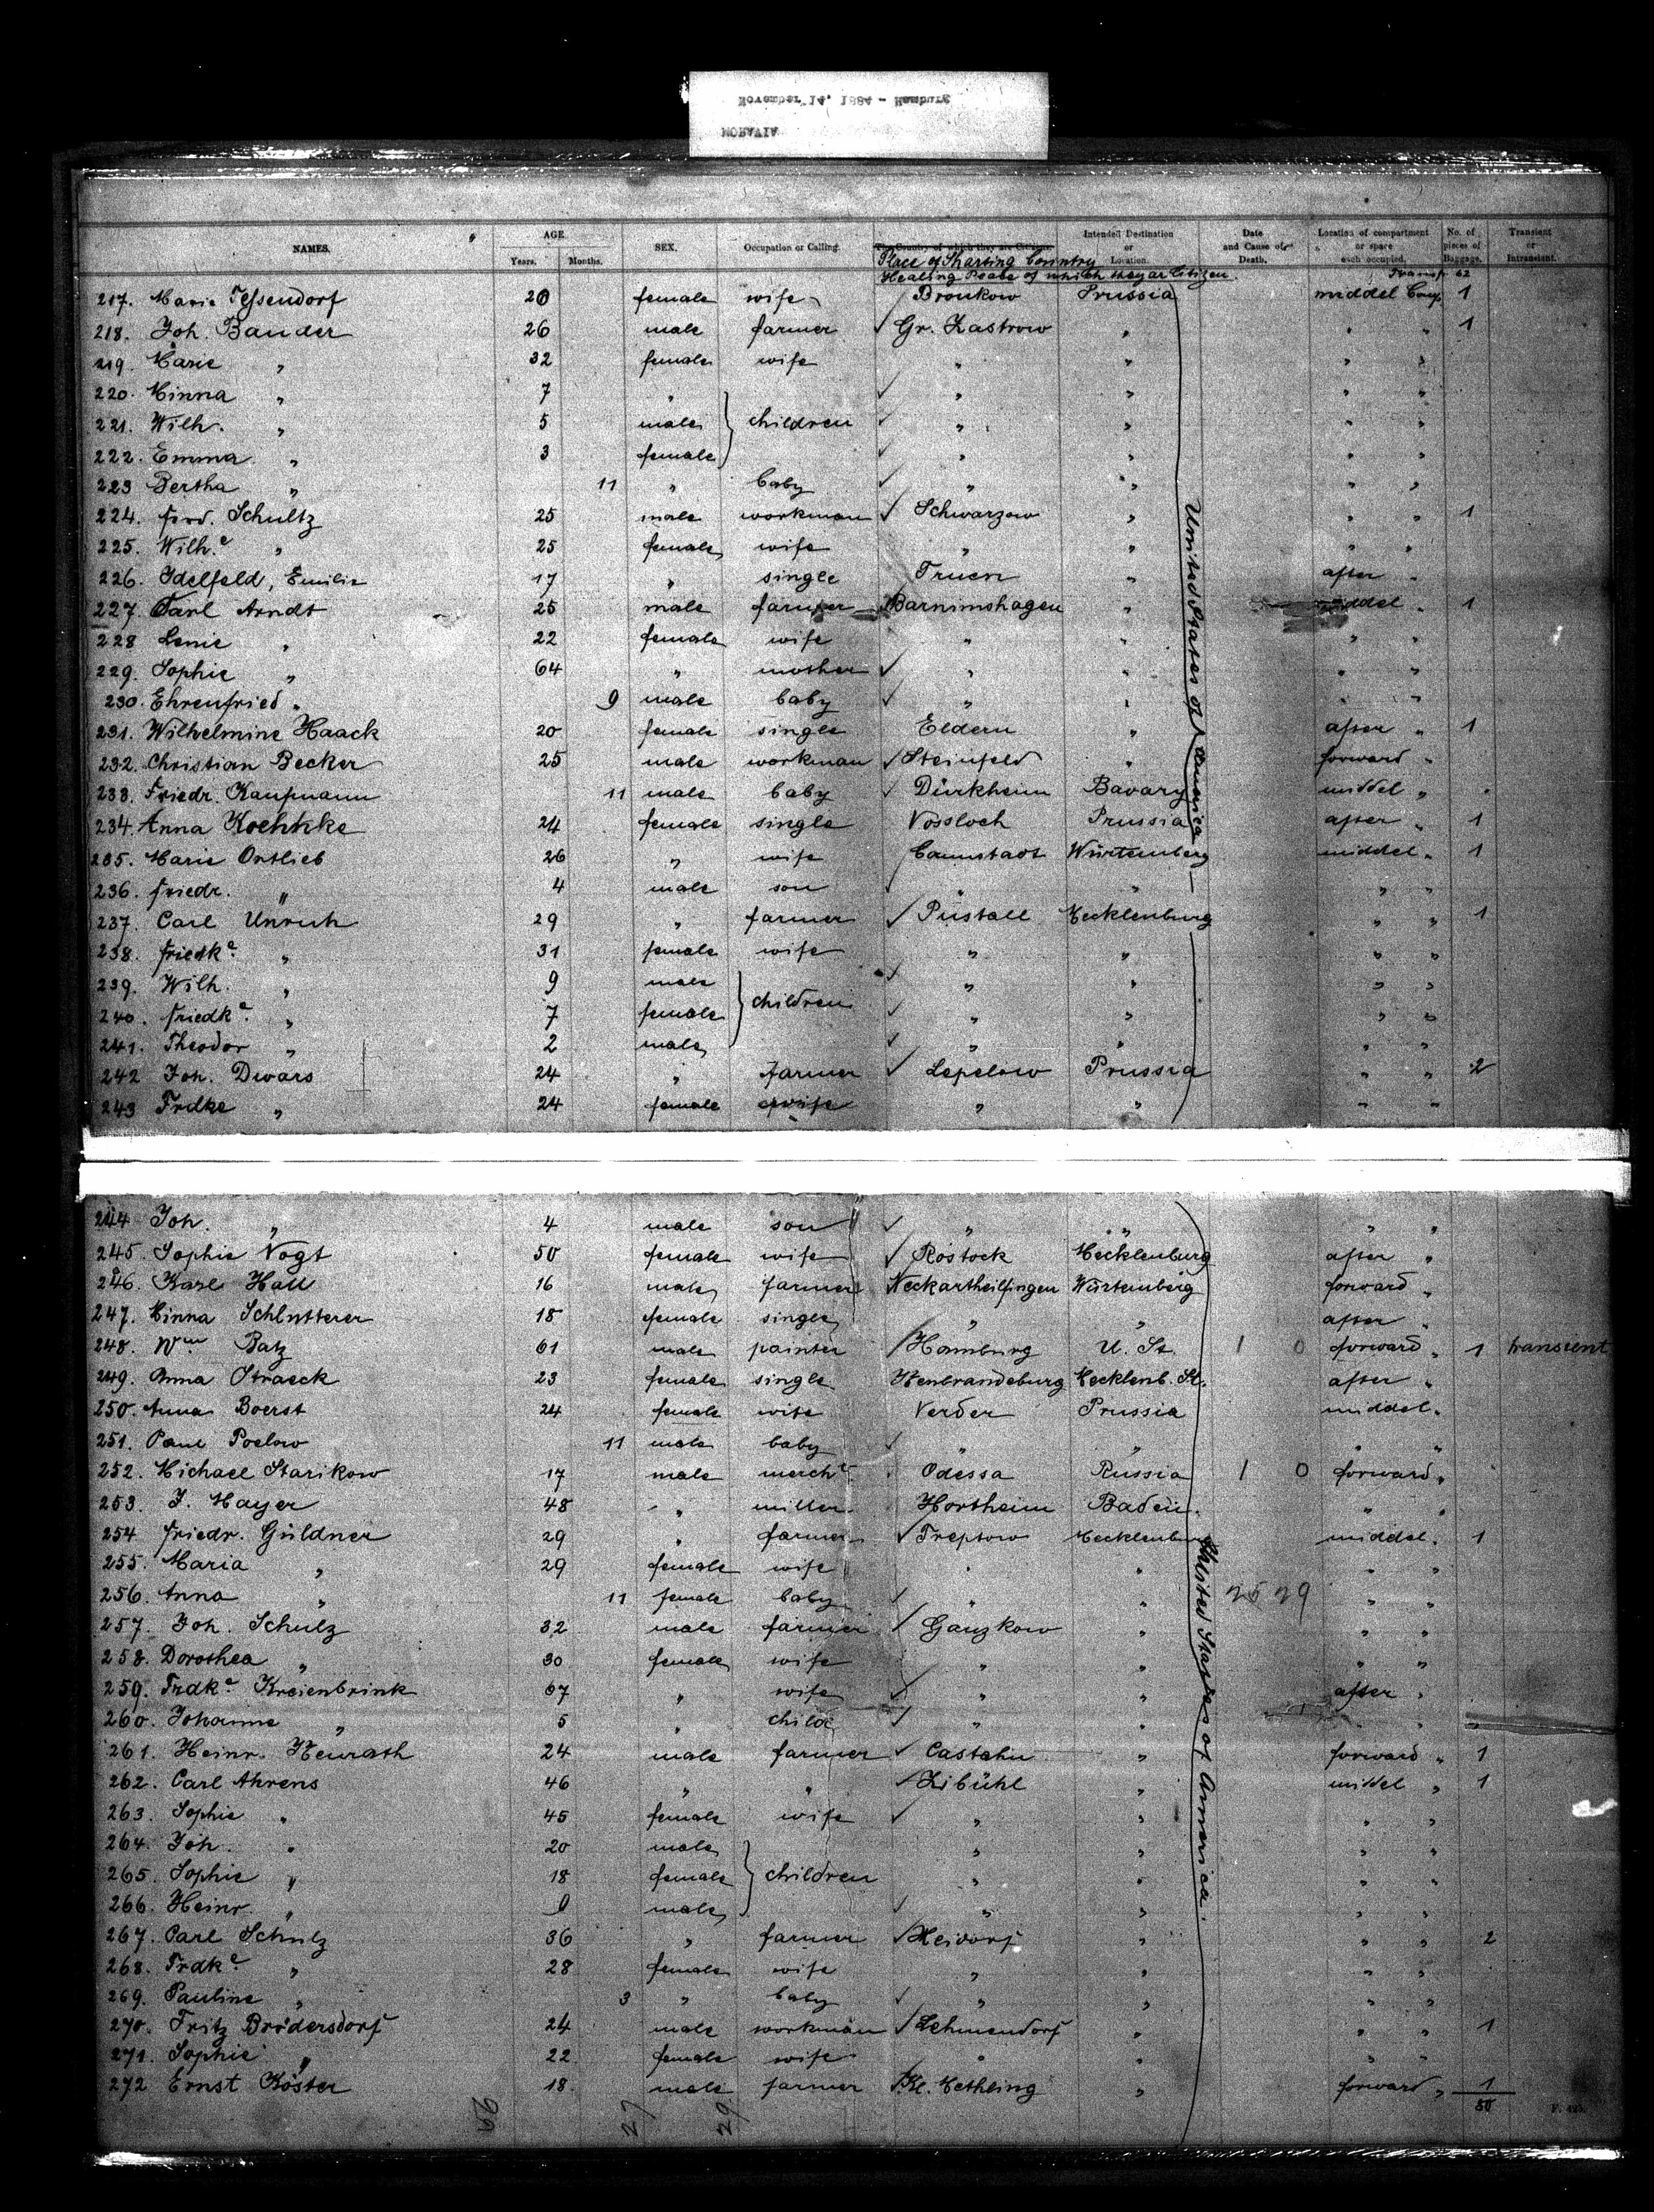 November 14, 1884 - Hamburg
MORAVIA
NAMES. AGE. Years. Months. SEX. Occupation or Calling. The Country of which they are Citizens. Intended Destination or Location. Date and Cause of Death. Location of compartment or space each occupied. No. of pieces of Baggage. Transient or Intransient.
Place of Starting Country
of which they ar Citizen. Transp. 62
217. Marie Tessendorf 20 female wife Bronkow Prussia middel Comp. 1
218. Joh. Bander 26 male farmer Gr. Zastrow " " " 1
219. Marie " 32 female wife " " " "
220. Minna " 7 " " " " "
221. Wilh. " 5 male children " " " "
222. Emma " 3 female " " " "
223 Bertha " 11 " baby " " " "
224. Ferd. Schultz 25 male workman Schwarzow " " " 1
225. Wilh.e " 25 female wife " " " "
226. Idelfeld, Emilie 17 " single Truen " after "
227. Carl Arndt 25 male farmer Barnimshagen " middel " 1
228 Lene " 22 female wife " " " "
229. Sophie " 64 " mother " " " "
230. Ehrenfried " 9 male baby " " " "
231. Wilhelmine Haack 20 female single Eldern " after " 1
232. Christian Becker 25 male workman Steinfeld " forward "
233. Friedr. Kaufmann 11 male baby Dürkheim Bavary middel " "
234. Anna Koehnke 24 female single Vossloch Prussia after " 1
235. Marie Ortlieb 26 " wife Cannstadt Würtemberg middel " 1
236. Friedr. " 4 male son " " " "
237. Carl Unruh 29 " farmer Püstall Mecklenburg " " 1
238. Friedk.e " 31 female wife " " " "
239. Wilh. " 9 male children " " " "
240. Friedk.e " 7 female " " " "
241. Theodor " 2 male " " " "
242 Joh. Dwars 24 " farmer Lepelow Prussia " " 2
243 Frdke " 24 female wife " " " "
United States of America
244 Joh. " 4 male son " " " "
245. Sophie Vogt 50 female wife Rostock Mecklenburg after "
246. Karl Hall 16 male farmer Neckartheilfingen Würtemberg forward "
247. Minna Schlutterer 18 female single " " after "
248. Wm Batz 61 male painter Hamburg U. St. 1 0 forward " 1 transient
249. Anna Straeck 23 female single Neubrandeburg Mecklenb. St. after "
250. Anna Boerst 24 female wife Verder Prussia middel "
251. Paul Poelow 11 male baby " " " "
252. Michael Starikow 17 male mercht Odessa Russia 1 0 forward "
253. J. Mayer 48 " miller Hortheim Baden " "
254 Friedr. Güldner 29 " farmer Treptow Mecklenburg middel " 1
255. Maria " 29 female wife " " " "
256. Anna " 11 female baby " " 25 29 " "
257. Joh. Schulz 32 male farmer Ganzkow " " "
258. Dorothea " 30 female wife " " " "
259. Frdk.e Kreienbrink 37 " wife " " after "
260. Johanne " 5 " child " " " "
261. Heinr. Heurath 24 male farmer Castahn " forward " 1
262. Carl Ahrens 46 " " Zibühl " middel " 1
263. Sophie " 45 female wife " " " "
264. Joh. " 20 male children " " " "
265. Sophie " 18 female " " " "
266. Heinr. " 9 male " " " "
267. Carl Schulz 36 " farmer Heidorf " " " 2
268. Frdk.e " 28 female wife " " " "
269. Pauline " 3 " baby " " " "
270. Fritz Brödersdorf 24 male workman Lehmendorf " " " 1
271. Sophie " 22 female wife " " " "
272 Ernst Köster 18 male farmer Kl. Methling " forward " 1
United States of America.
50
27 29